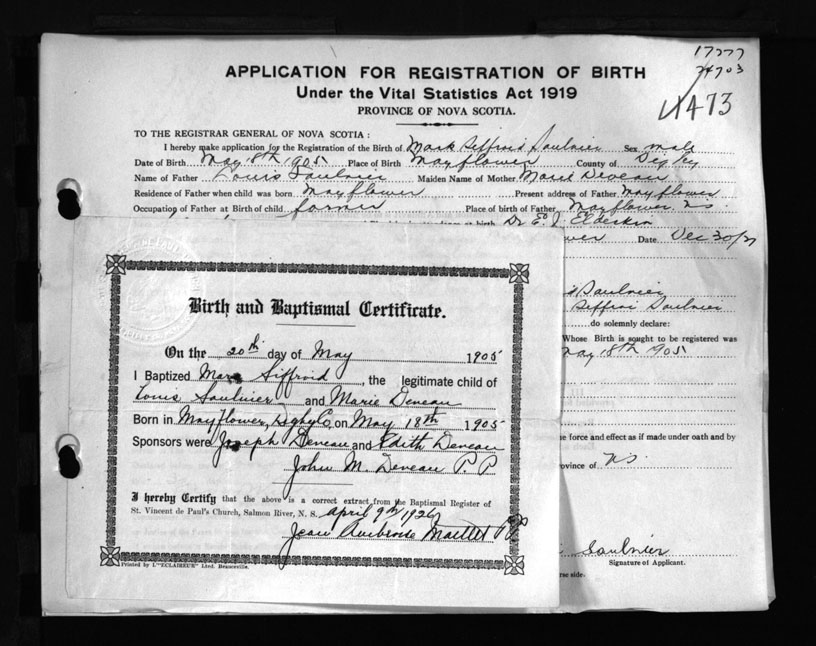 17777
74703
473
APPLICATION FOR REGISTRATION OF BIRTH
Under the Vital Statistics Act 1919
PROVINCE OF NOVA SCOTIA.
TO THE REGISTRAR GENERAL OF NOVA SCOTIA :
I hereby make application for the Registration of the Birth of Mark Siffroi Saulnier Sex male
Date of Birth May 18th 1905 Place of Birth Mayflower County of Digby
Name of Father Louis Saulnier Maiden Name of Mother Marie Deveau
Residence of Father when child was born Mayflower Present address of Father Mayflower
Occupation of Father at Birth of child farmer Place of birth of Father Mayflower NS
at birth Dr E. J. Elderkin
Date Dec 30/
Saulnier
Siffroi Saulnier
do solemnly declare:
Whose Birth is sought to be registered was
May 18th 1905
me force and effect as if made under oath and by
ovince of NS.
Saulnier
Signature of Applicant.
rse side.
Birth and Baptismal Certificate.
On the 20th day of May 1905
I Baptized Marc Siffroid, the legitimate child of
Louis Saulnier and Marie Deveau
Born in Mayflower, Digby Co, on May 18th 1905
Sponsors were Joseph Deveau and Edith Deveau
John M. Deveau P.P
I hereby Certify that the above is a correct extract from the Baptismal Register of
St. Vincent de Paul's Church, Salmon River, N. S. April 9th 1926
Jean Ambroise Maillet PP
Printed by L'"ECLAIREUR" Ltd. Beauceville.